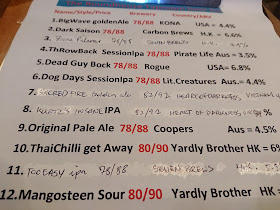 Price Style Brewery Country/ABV
1.BigWave goldenAle 78/88 KONA USA = 4.4%
2.Dark Saison 78/88 Carbon Brews H.K = 6.6%
3. 78/88
4.ThRowBack SessionIpa 78/88 Pirate Life Aus= 3.5%
5.Dead Guy Bock 78/88 Rogue USA = 6.8%
6.Dog Days SessionIpa 78/88 Lit.Creatures Aus = 4.4%
7. 82/92 HEART OF DARKNESS,
8. KURTZ'S INSANE IPA 82/92 HEART OF DARKNESS %
9.Original Pale Ale 78/88 Coopers Aus = 4.5%
10.ThaiChilli get Away 80/90 Yardly Brother HK = 6
11. TOO EASY ipa 78/88 BREWS H.K
12.Mangosteen Sour 80/90 Yardly Brother HK =